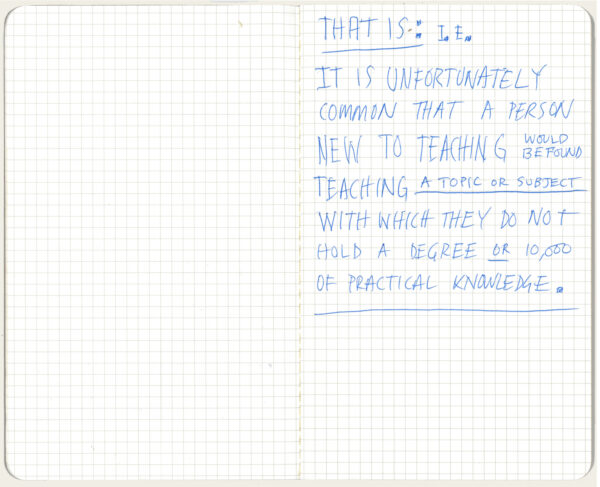 THAT IS: I.E.
IT IS UNFORTUNATELY
COMMON THAT A PERSON
NEW TO TEACHING WOULD BE FOUND
TEACHING A TOPIC OR SUBJECT
WITH WHICH THEY DO NOT
HOLD A DEGREE OR 10,000
OF PRACTICAL KNOWLEDGE.